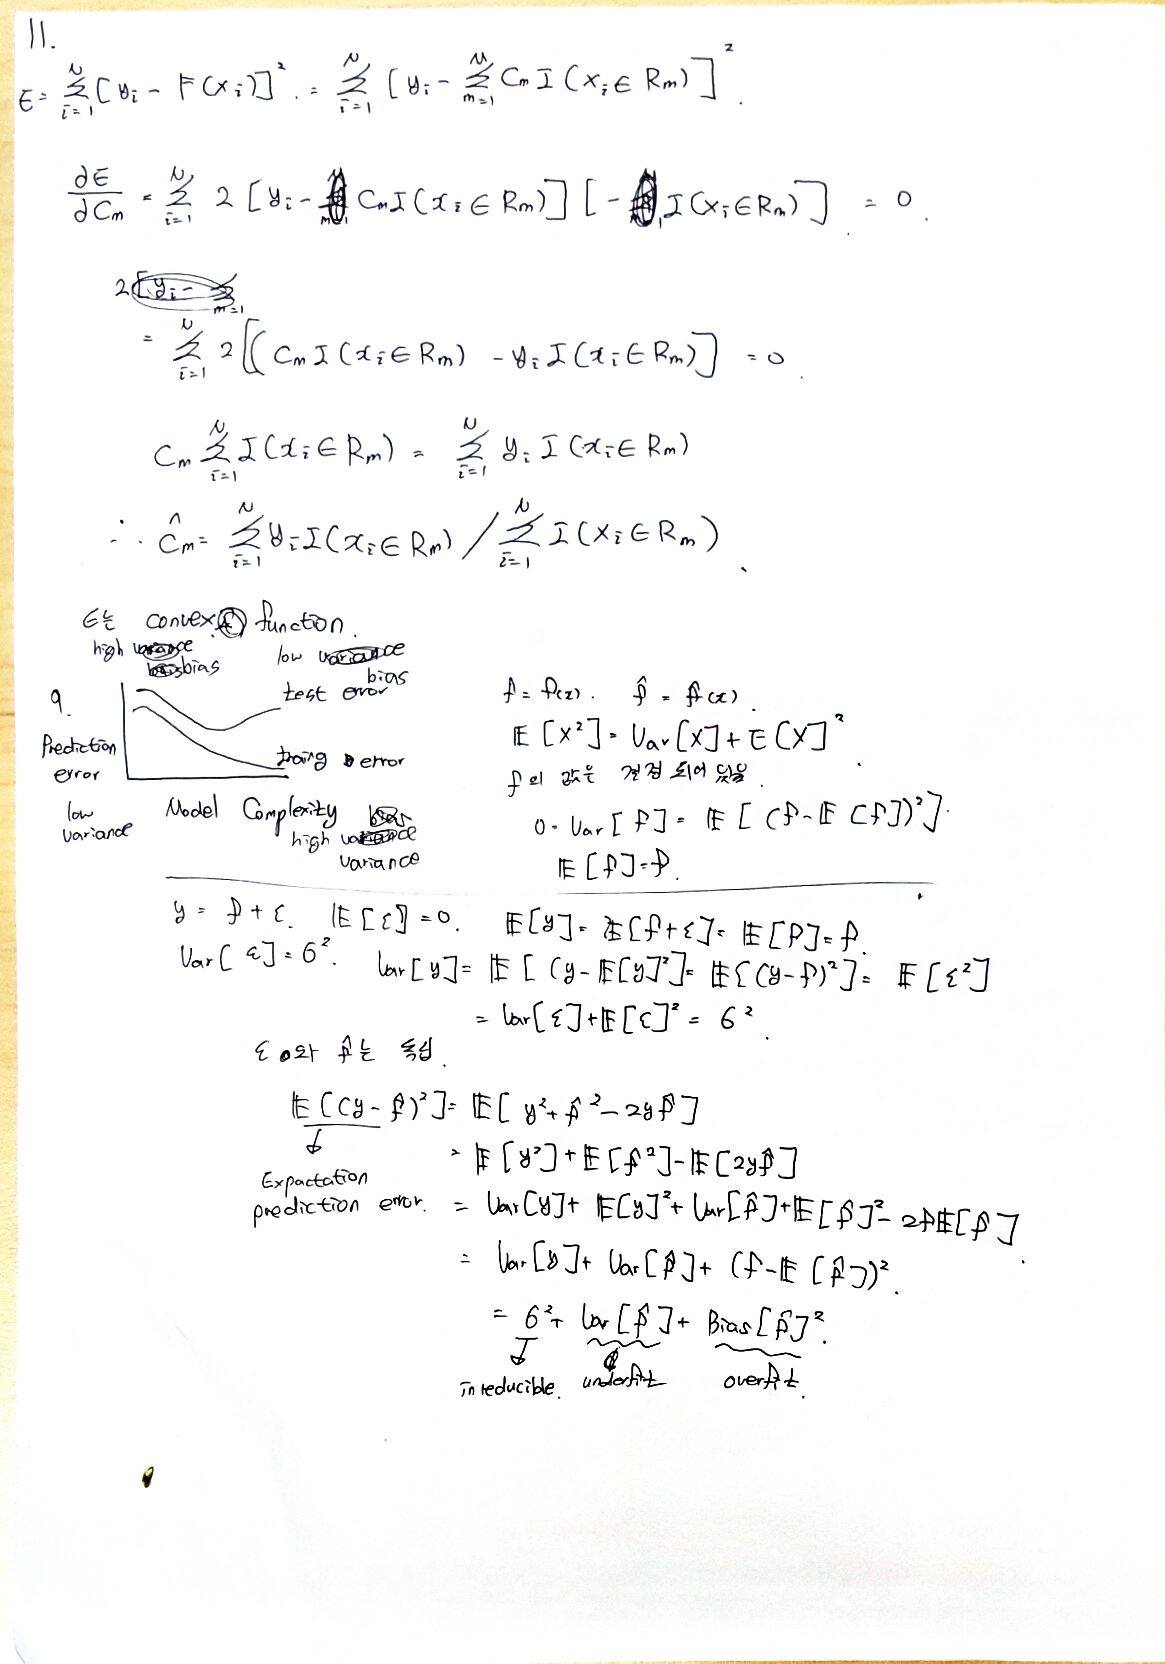 11.
E = Σ_{i=1}^{N} [y_i - F(x_i)]² = Σ_{i=1}^{N} [y_i - Σ_{m=1}^{M} C_m I(x_i ∈ R_m)]².
∂E/∂C_m = Σ_{i=1}^{N} 2 [y_i - C_m I(x_i ∈ R_m)] [- I(x_i ∈ R_m)] = 0.
= Σ_{i=1}^{N} 2 [(C_m I(x_i ∈ R_m) - y_i I(x_i ∈ R_m)] = 0.
C_m Σ_{i=1}^{N} I(x_i ∈ R_m) = Σ_{i=1}^{N} y_i I(x_i ∈ R_m)
∴ Ĉ_m = Σ_{i=1}^{N} y_i I(x_i ∈ R_m) / Σ_{i=1}^{N} I(x_i ∈ R_m).
E는 convex function.
high bias
low bias
9.
test error
Prediction error
traing error
low variance
Model Complexity
high variance
f = f(x). f̂ = f̂(x).
E[X²] = Var[X] + E[X]².
f의 값은 결정 되어 있음
0 = Var[f] = E[(f - E[f])²].
E[f] = f.
y = f + ε. E[ε] = 0. E[y] = E[f + ε] = E[f] = f.
Var[ε] = 6². Var[y] = E[(y - E[y]²] = E[(y - f)²] = E[ε²]
= Var[ε] + E[ε]² = 6².
ε와 f̂는 독립.
E[(y - f̂)²] = E[y² + f̂² - 2yf̂]
= E[y²] + E[f̂²] - E[2yf̂]
Expactation
prediction error. = Var[y] + E[y]² + Var[f̂] + E[f̂]² - 2fE[f̂].
= Var[y] + Var[f̂] + (f - E[f̂])².
= 6² + Var[f̂] + Bias[f̂]².
inreducible. underfit overfit.